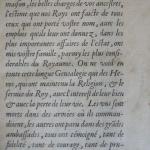 maison, les belles charges de vos ancestres,
l'estime que nos Roys ont faicte de tous
ceux qui ont porté vostre nom, & les em-
plois qu'ils leur ont donnez, dans les
plus importantes affaires de l'estat, ont
mis vostre famille, parmy les plus consi-
derables du Royaume. On ne void en
toute cette longue Genealogie que des He-
ros, qui ont maintenu la Religion, & ser-
fermes du Roy, avec l'interest de leur bien
& avec la perte de leur vie. Les uns sont
morts dans des armées où ils comman-
doient, les autres ont passé dans des gra
ambassades, tous ont témoigné, tant de
fidelité, tant de courage, tant de pru-